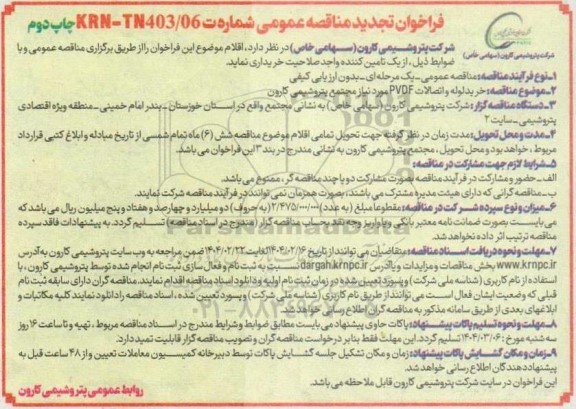 فراخوان تجدید مناقصه عمومی شماره ت KRN-TN403/06 چاپ دوم
شرکت پتروشیمی کارون (سهامی خاص)
شرکت پتروشیمی کارون (سهامی خاص) در نظر دارد، اقلام موضوع این فراخوان را از طریق برگزاری مناقصه عمومی و با
ضوابط ذیل، از یک تامین کننده واجد صلاحیت خریداری نماید.
۱-نوع فرآیند مناقصه: مناقصه عمومی-یک مرحله‌ای-بدون ارزیابی کیفی
۲-موضوع مناقصه: خرید لوله و اتصالات PVDF مورد نیاز مجتمع پتروشیمی کارون
۳-دستگاه مناقصه گزار: شرکت پتروشیمی کارون (سهامی خاص) به نشانی مجتمع واقع در استان خوزستان-بندر امام خمینی-منطقه ویژه اقتصادی
پتروشیمی-سایت ۲
۴-مدت و محل تحویل: مدت زمان در نظر گرفته جهت تحویل تمامی اقلام موضوع مناقصه شش (۶) ماه تمام شمسی از تاریخ مبادله و ابلاغ کتبی قرارداد
مربوط، خواهد بود و محل تحویل، مجتمع پتروشیمی کارون به نشانی مندرج در بند ۳ این فراخوان می باشد.
۵-شرایط لازم جهت مشارکت در مناقصه:
الف-حضور و مشارکت در فرآیند مناقصه بصورت مشارکت دو یا چند مناقصه گر، ممنوع می باشد.
ب-مناقصه گرانی که دارای هیئت مدیره مشترک می باشند، بصورت همزمان نمی توانند در فرآیند مناقصه شرکت نمایند.
۶-میزان و نوع سپرده شرکت در مناقصه: مقطوعا مبلغ (به عدد) ۲/۴۷۵/۰۰۰/۰۰۰ (به حروف) دو میلیارد و چهارصد و هفتاد و پنج میلیون ریال می باشد که
می بایست بصورت ضمانت نامه معتبر بانکی و یا واریز وجه نقد بحساب مناقصه گزار (مندرج در اسناد مناقصه) تسلیم گردد. به پیشنهادات فاقد سپرده
مناقصه ترتیب اثر داده نخواهد شد.
۷-مهلت و نحوه دریافت اسناد مناقصه: متقاضیان می توانند از تاریخ ۱۴۰۴/۰۲/۱۶ لغایت ۱۴۰۴/۰۲/۲۲ ضمن مراجعه به وب سایت پتروشیمی کارون به آدرس
www.krnpc.ir بخش مناقصات و مزایدات و یا آدرس dargah.krnpc.ir نسبت به ثبت نام و فعال سازی ثبت نام انجام شده توسط پتروشیمی کارون، با
استفاده از نام کاربری (شناسه ملی شرکت) و پسورد تعیین شده در زمان ثبت نام اولیه و دانلود اسناد مناقصه اقدام نمایند. مناقصه گران دارای سابقه ثبت نام
قبلی که وضعیت ایشان فعال است می توانند از طریق نام کاربری (شناسه ملی شرکت) و پسورد تعیین شده، اسناد مناقصه را دانلود نمایند کلیه مکاتبات و
ابلاغهای بعدی از طریق سامانه مذکور به مناقصه گران اطلاع رسانی خواهد شد.
۸-مهلت و نحوه تسلیم پاکات پیشنهاد: پاکات حاوی پیشنهاد می بایست مطابق ضوابط و شرایط مندرج در اسناد مناقصه مربوط، تهیه و تا ساعت ۱۶ روز
سه شنبه مورخ: ۱۴۰۴/۰۳/۰۶ تسلیم گردد. این مهلت فقط بنابر درخواست مناقصه گران و تصویب مناقصه گزار قابلیت تمدید دارد.
۹-زمان و مکان گشایش پاکات پیشنهاد: زمان و مکان تشکیل جلسه گشایش پاکات توسط دبیرخانه کمیسیون معاملات تعیین و از ۴۸ ساعت قبل به
پیشنهاددهندگان اطلاع رسانی خواهد شد.
این فراخوان در سایت شرکت پتروشیمی کارون قابل ملاحظه می باشد.
روابط عمومی پتروشیمی کارون